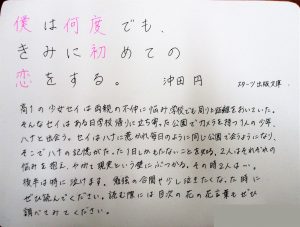 僕は何度でも、
きみに初めての
恋をする。 沖田 円 スターツ出版文庫
高1の少女セイは両親の不仲に悩み学校でも周りと距離をおいていた。
そんなセイはある日学校帰りに立ち寄った公園でカメラを持つ1人の少年、
ハナと出会う。セイはハナに惹かれ毎日のように同じ公園で会うようになり、
そこでハナの記憶がたった1日しかもたないことを知る。2人はそれぞれの
悩みを抱え、やがて現実という壁にぶつかる。その時2人は…。
後半は特に泣けます。勉強の合間や少し泣きたくなった時に
ぜひ読んでください。読む際には目次の花の花言葉もぜひ
調べてみてください。